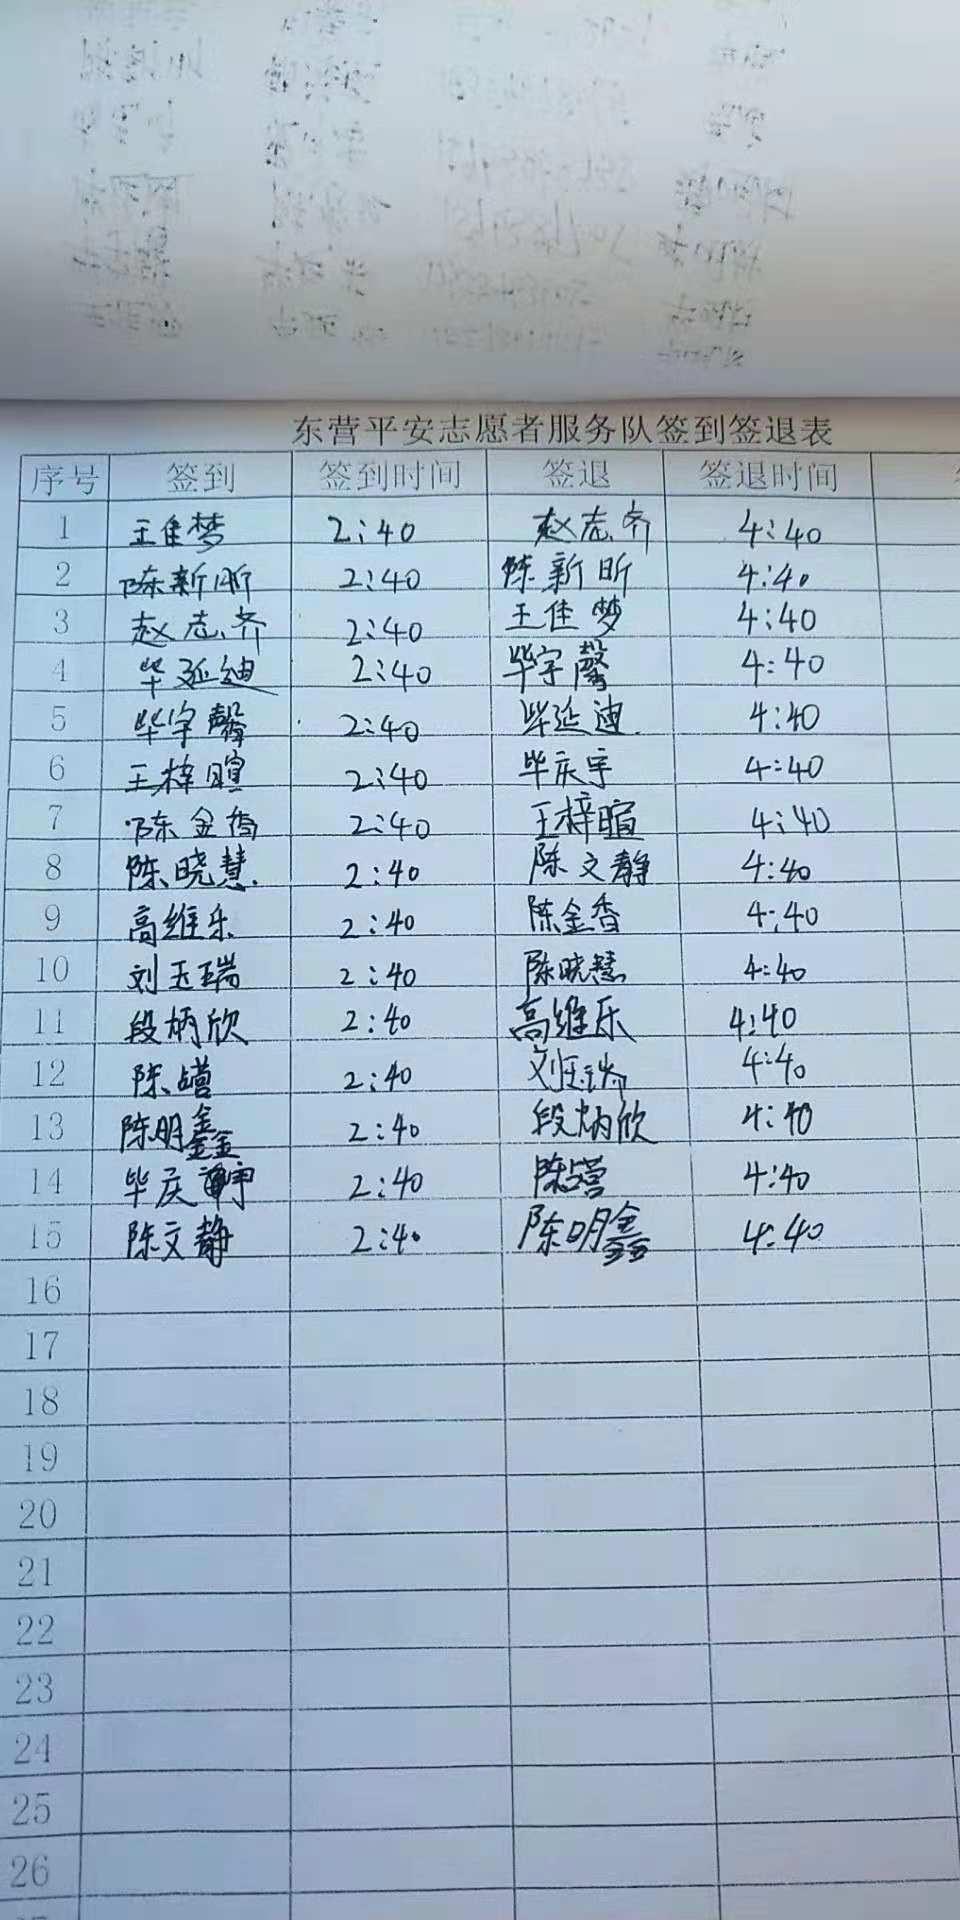 东营平安志愿者服务队签到签退表
序号 签到 签到时间 签退 签退时间
1 王佳梦 2:40 赵志齐 4:40
2 陈新昕 2:40 陈新昕 4:40
3 赵志齐 2:40 王佳梦 4:40
4 毕延迪 2:40 毕宇馨 4:40
5 毕宇馨 2:40 毕延迪 4:40
6 王梓暄 2:40 毕庆宇 4:40
7 陈金香 2:40 王梓暄 4:40
8 陈晓慧 2:40 陈文静 4:40
9 高维乐 2:40 陈金香 4:40
10 刘玉瑞 2:40 陈晓慧 4:40
11 段炳欣 2:40 高维乐 4:40
12 陈 2:40 刘玉瑞 4:40
13 陈明鑫 2:40 段炳欣 4:40
14 毕庆宇 2:40 陈 4:40
15 陈文静 2:40 陈明鑫 4:40
16
17
18
19
20
21
22
23
24
25
26